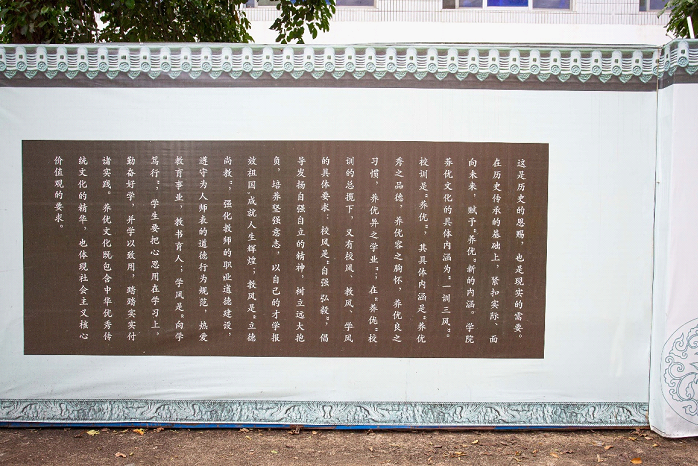 这是历史的恩赐，也是现实的需要。
在历史传承的基础上，紧扣实际、面
向未来，赋予“养优”新的内涵。学院
养优文化的具体内涵为“一训三风”。
校训是“养优”，其具体内涵是“养优
秀之品德，养优容之胸怀，养优良之
习惯，养优异之学业”；在“养优”校
训的总揽下，又有校风、教风、学风
的具体要求：校风是“自强 弘毅”，倡
导发扬自强自立的精神，树立远大抱
负，培养坚强意志，以自己的才学报
效祖国，成就人生辉煌；教风是“立德
尚教”，强化教师的职业道德建设，
遵守为人师表的道德行为规范，热爱
教育事业，教书育人；学风是“向学
笃行”，学生要把心思用在学习上，
勤奋好学，并学以致用，踏踏实实付
诸实践。养优文化既包含中华优秀传
统文化的精华，也体现社会主义核心
价值观的要求。